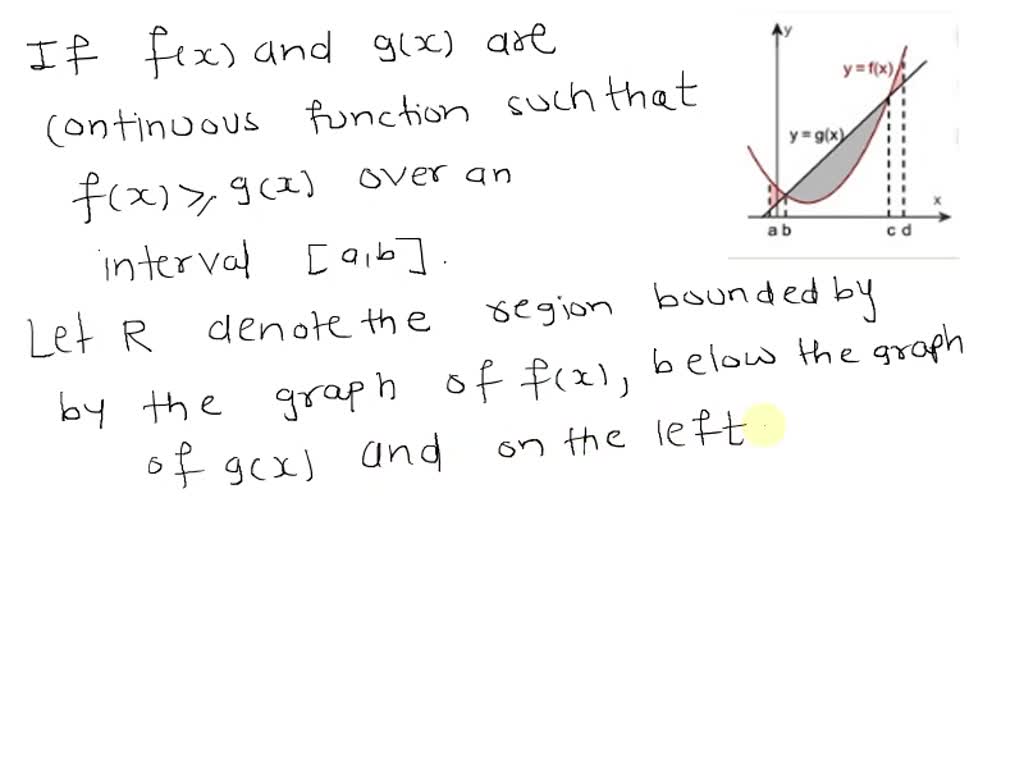 If f(x) and g(x) are
continuous function such that
f(x) ⩾ g(x) over an
interval [a,b].
Let R denote the region bounded by
by the graph of f(x), below the graph
of g(x) and on the left
y
y = f(x)
y = g(x)
x
a b c d